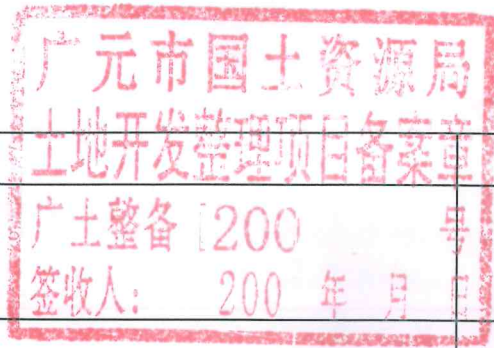 广元市国土资源局
土地开发整理项目备案章
广土整备〔200 号
签收人: 200 年 月 日